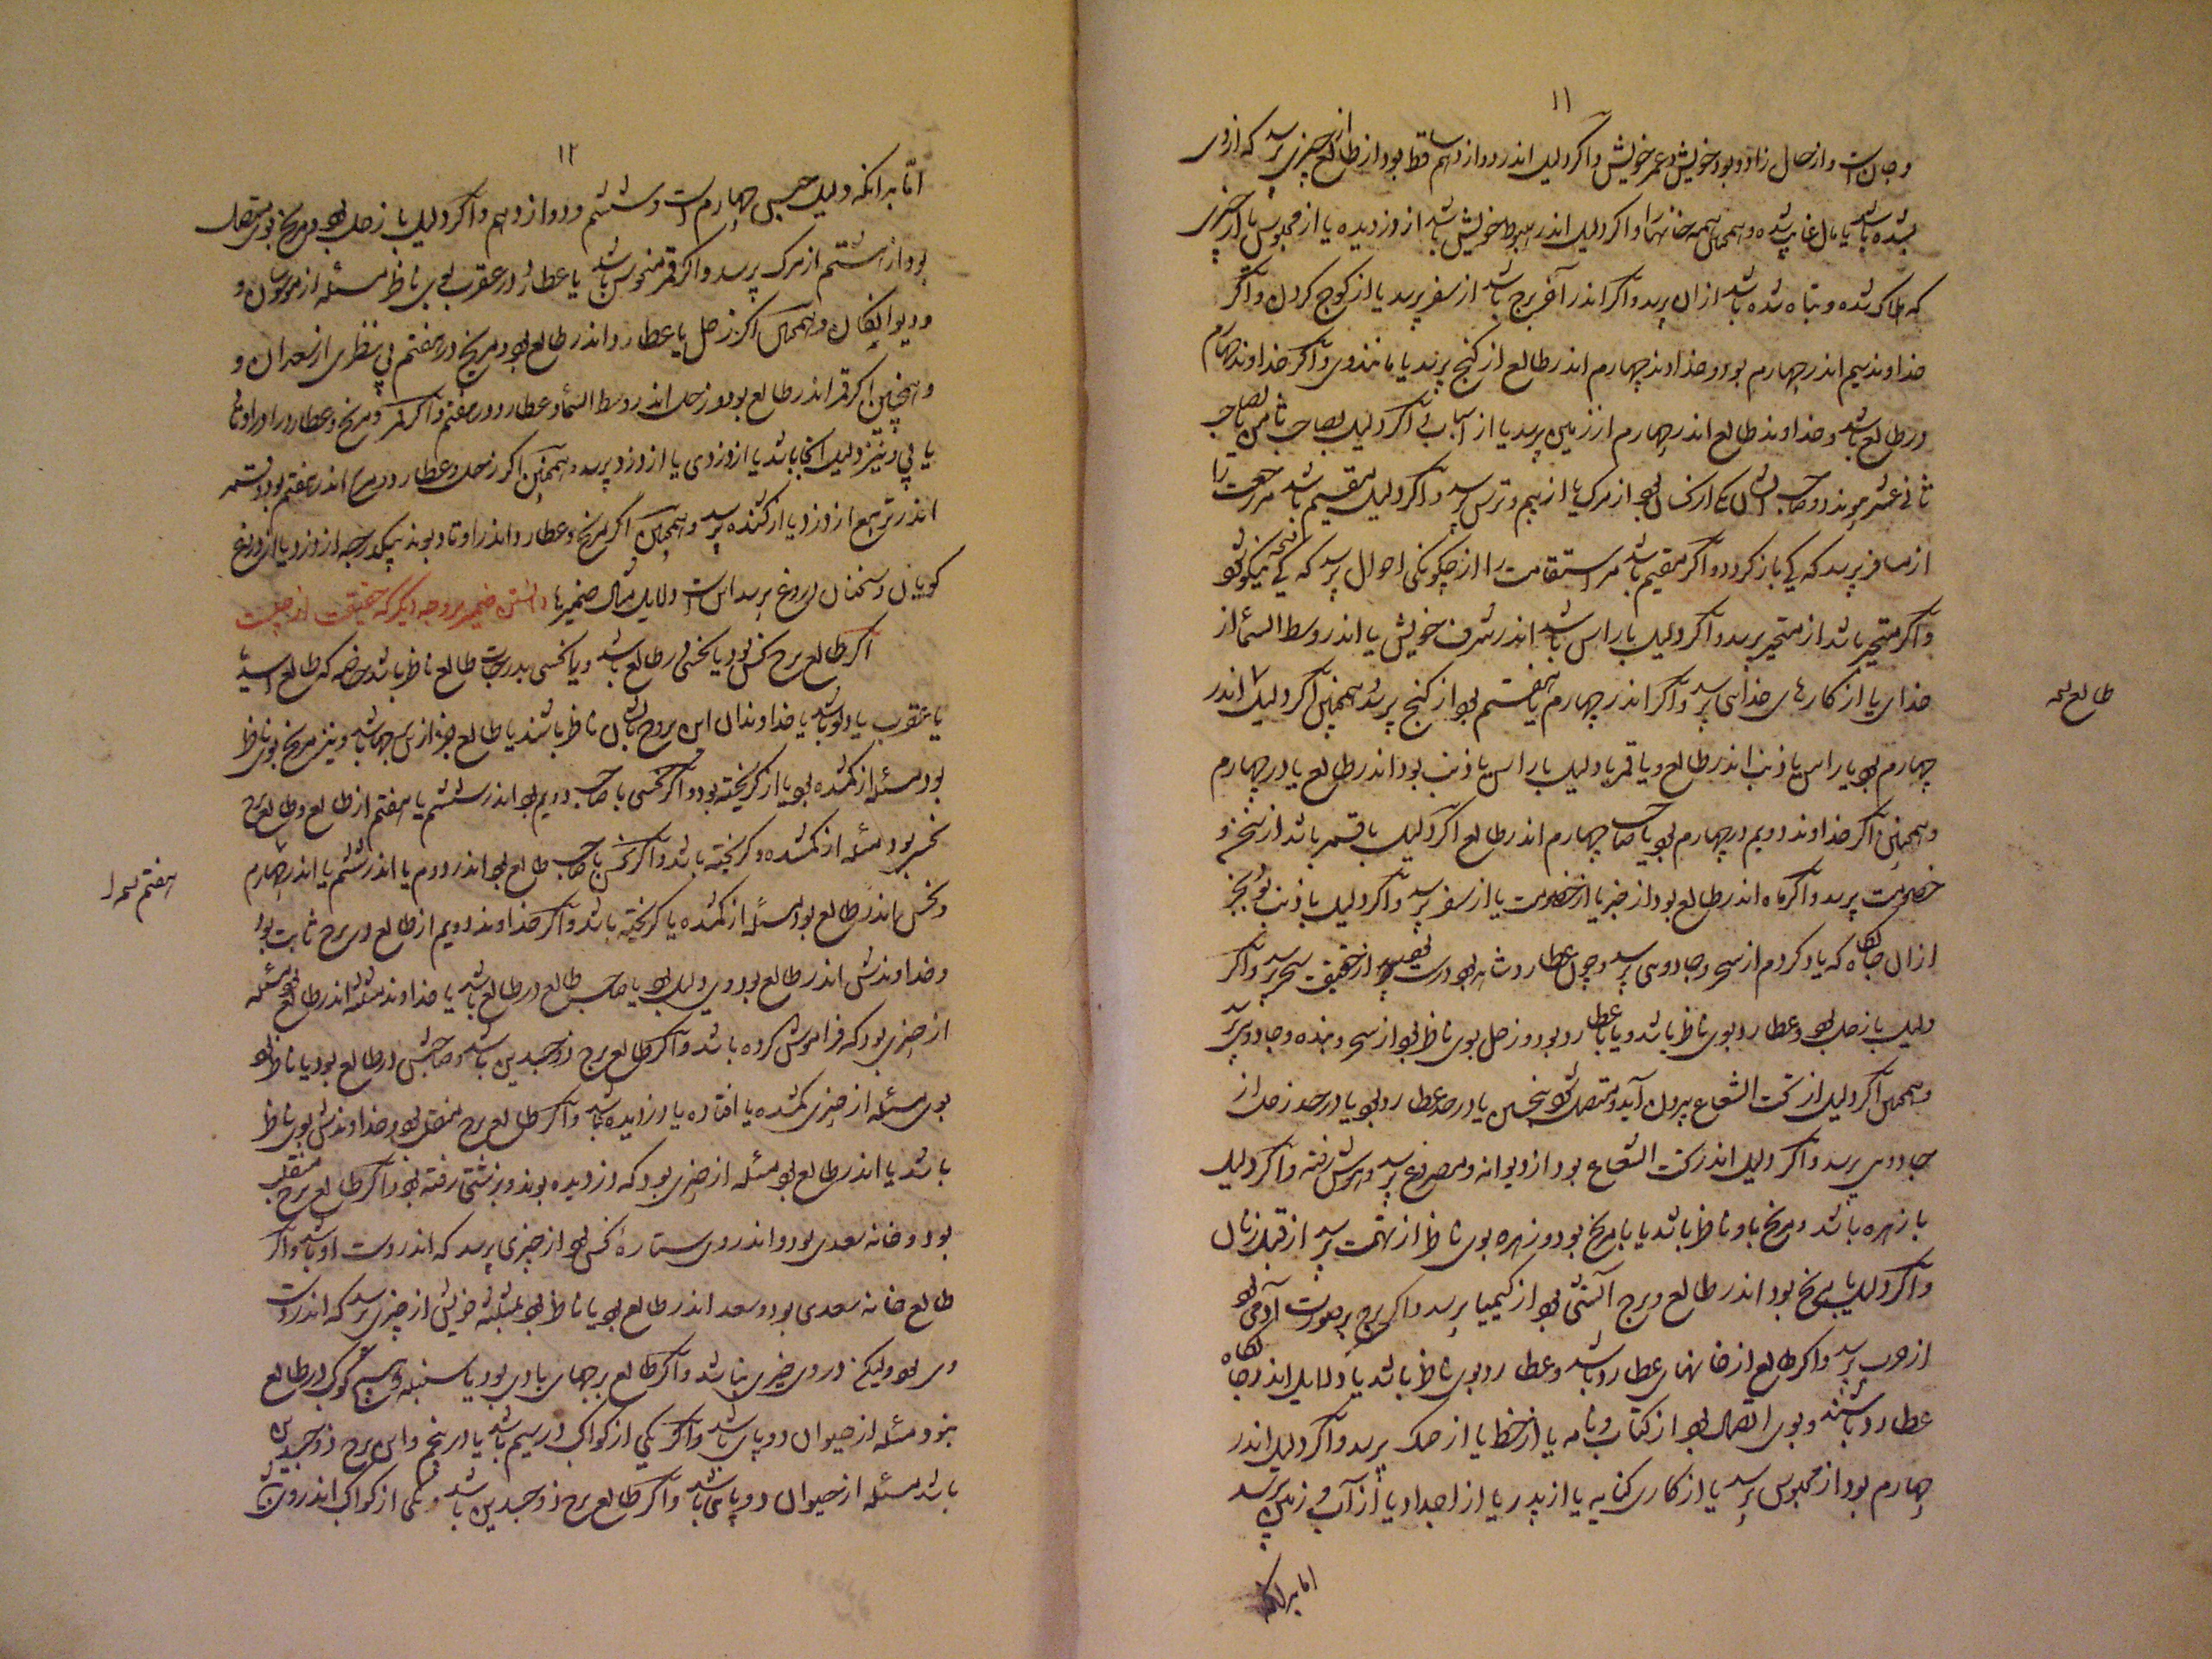 ۱۱
و جان است و از حال زاد و بود خویش و عمر خویش و اگر دلیل اندر دوازدهم ساقط بود از طالع از چیزی پرسد که از وی
بشده باشد یا مال غایب شده و همچنین همه خانها و اگر دلیل اندر هبوط خویش باشد از دزدیده یا از محبوس یا از چیزی
که هلاک شده و تباه شده باشد از آن پرسد و اگر اندر آخر برج باشد از سفر پرسد یا از کوچ کردن و اگر
خداوند سیم اندر چهارم بود و خداوند چهارم اندر طالع از گنج پرسد یا مانند وی و اگر خداوند چهارم
در طالع باشد و خداوند طالع اندر چهارم از زمین پرسد یا از اسباب و اگر دلیل بصاحب ثامن یا بصاحب
ثانی عشر پیوندد از مرگ یا از بیم و ترس پرسد و اگر دلیل مقیم باشد مر رجعت را
از مسافر پرسد که کی باز گردد و اگر مقیم باشد مر استقامت را از چگونگی احوال پرسد که کی نیکو شود
و اگر متحیر باشد از متحیر پرسد و اگر دلیل با راس باشد اندر شرف خویش یا اندر وسط السما از
خدای یا از کارهای خدائی پرسد و اگر اندر چهارم یا هفتم بود از گنج پرسد همچنین اگر دلیل اندر
چهارم بود یا راس یا ذنب اندر طالع و یا قمر یا دلیل با راس یا ذنب بود اندر طالع یا در چهارم
و همچنین اگر خداوند دویم در چهارم بود یا صاحب چهارم اندر طالع اگر دلیل با قمر باشد از
خصومت پرسد و اگر ماه اندر طالع بود از خبر یا از خصومت یا از سفر پرسد و اگر دلیل با ذنب بود بجز
از آن جایگاه که یاد کردم از سحر و جادوی پرسد و چون عطارد از حقیقت سحر پرسد و اگر
دلیل با زحل بود و عطارد بوی ناظر باشد و یا با عطارد بود و زحل بوی ناظر بود از سحر و بنده و جادوی پرسد
و همچنین اگر دلیل از تحت الشعاع بیرون آید و متصل شود بنحسین یا در حد عطارد بود یا در حد زحل از
جادوی پرسد و اگر دلیل اندر تحت الشعاع بود از دیوانه و مصروع پرسد و هوش رفته و اگر دلیل
با زهره باشد و مریخ باو ناظر باشد یا با مریخ بود و زهره بوی ناظر از تهمت پرسد از قبل زنان
و اگر دلیل با مریخ بود اندر طالع و برج آتشی بود از کیمیا پرسد و اگر برج بر صورت آدمی بود
از حرب پرسد و اگر طالع از خانهای عطارد باشد و عطارد بوی ناظر باشد یا دلایل اندر جایگاه
عطارد باشند و بوی اتصال بود از کتاب و نامه یا از خط یا از صک پرسد و اگر دلیل اندر
چهارم بود از محبوس پرسد یا از کاری کنایه یا از پدر یا از اجداد یا از آب و زمین پرسد
اما بدانکه
طالع
۱۲
امّا بدانکه دلیل حبس چهارم است و ششم و دوازدهم و اگر دلیل با زحل بود و مریخ بوی متصل
بود از هشتم از مرگ پرسد و اگر قمر منحوس باشد یا عطارد در عقرب بود بی ناظر مسئله از و
و دیوانگان و همچنین اگر زحل یا عطارد اندر طالع بود و مریخ در هفتم بی نظری از سعدان و
و همچنین اگر قمر اندر طالع بود و زحل اندر وسط السّما و عطارد در هفتم و اگر قمر و مریخ و عطارد در اوتاد
یا بی و نیز دلیل آنجا باشد یا از دزدی یا از دزد پرسد و همچنین اگر زحل و عطارد و مریخ اندر هفتم بود و قمر
اندر تربیع از دزد یا از کشنده پرسد و همچنین اگر مریخ و عطارد اندر اوتاد بوند بیکدرجه از دزد یا از دروغ
گویان و سخنان دروغ پرسد این است دلایل مثال ضمیرها دانستن ضمیر بر وجه دیگر که حقیقت از چیست
اگر طالع برج نحس بود یا نحسی در طالع باشد و یا نحسی بدرجات طالع ناظر باشد خاصه که طالع اسد
یا عقرب یا دلو باشد یا خداوندان این بروج بایشان ناظر باشند یا طالع باشد و نیز مریخ بوی ناظر
بود مسئله از گمشده بود یا از گریخته بود و اگر نحسی با صاحب دویم بود اندر ششم یا هفتم از طالع و طالع برج
نحس بود مسئله از گمشده و گریخته باشد و اگر نحسی با صاحب طالع بود اندر دوم یا اندر ششم یا اندر چهارم
و نحس اندر طالع بود مسئله از گمشده یا گریخته باشد و اگر خداوند دویم از طالع در برج ثابت بود
و خداوندش اندر طالع بود و وی دلیل بود یا صاحب طالع در طالع باشد یا خداوند مثلثه اندر طالع بود مسئله
از چیزی بود که فراموش کرده باشد و اگر طالع برج ذوجسدین باشد و صاحبش در طالع بود یا ناظر بود
بوی مسئله از چیزی گمشده یا افتاده یا دزدیده باشد و اگر طالع برج منقلب بود و خداوندش بوی ناظر
باشد یا اندر طالع بود مسئله از چیزی بود که دزدیده بوند و بزشتی رفته بود و اگر طالع برج منقلب
بود و خانه سعدی بود و اندر وی ستاره نحس بود از چیزی پرسد که اندر دست او باشد و اگر
طالع خانه سعدی بود و سعد اندر طالع بود یا ناظر بود بمثلثه خویش از چیزی پرسد که اندر دست
وی بود ولیکن در وی چیزی نباشد و اگر طالع برجهای بادی بود یا سنبله و هیچ کوکب در طالع
نبود مسئله از حیوان دو پای باشد و اگر یکی از کواکب در سیم باشد یا در پنجم و این برج ذوجسدین
باشد مسئله از حیوان دو پای باشد و اگر طالع برج ذوجسدین باشد و یکی از کواکب اندر وی
هفتم